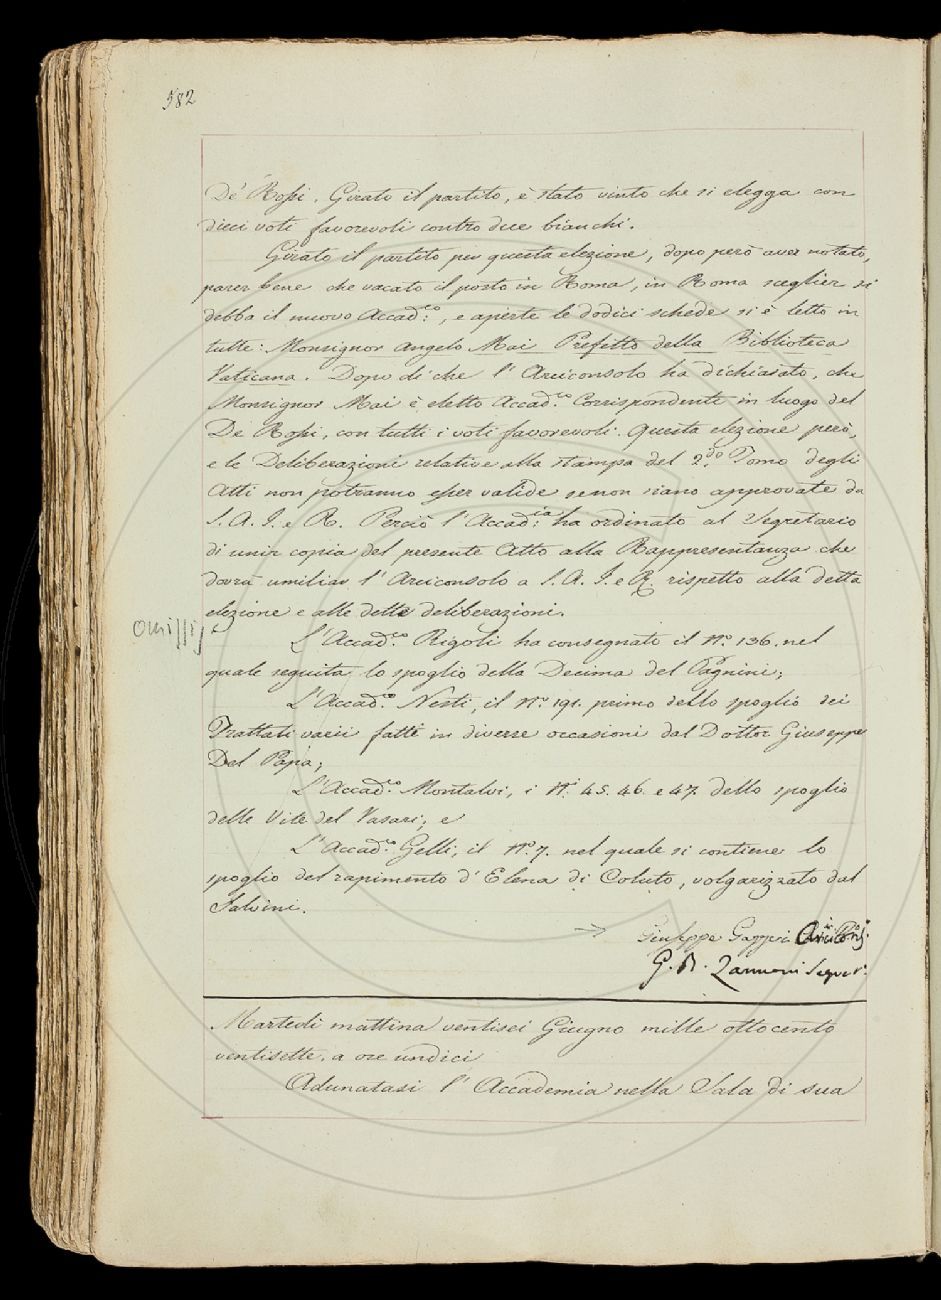 582
De' Rossi. Girato il partito, è stato vinto che si elegga con
dieci voti favorevoli contro due bianchi.
Girato il partito per questa elezione, dopo però aver notato,
parer bene che vacato il posto in Roma, in Roma sceglier si
debba il nuovo Accad:co, e aperte le dodici schede si è letto in
tutte: Monsignor Angelo Mai Prefetto della Biblioteca
Vaticana. Dopo di che l'Arciconsolo ha dichiarato, che
Monsignor Mai è eletto Accad.co Corrispondente in luogo del
De Rossi, con tutti i voti favorevoli. Questa elezione però,
e le Deliberazioni relative alla stampa del 2.do Tomo degli
Atti non potranno esser valide se non siano approvate da
S. A. I. e R. Perciò l'Accad:ia ha ordinato al Segretario
di unir copia del presente Atto alla Rappresentanza che
dovrà umiliar l'Arciconsolo a S. A. I. e R. rispetto alla detta
elezione e alle dette deliberazioni.
Omissis
L'Accad.co Rigoli ha consegnato il N.o 136. nel
quale seguita lo spoglio della Decima del Pagnini;
L'Accad.co Nesti, il N.o 191. primo dello spoglio dei
Trattati varii fatti in diverse occasioni dal Dottor Giuseppe
Del Papa;
L'Accad.co Montalvi, i N.i 45. 46. e 47. dello spoglio
delle Vite del Vasari; e
L'Accad.co Gelli, il N.o 7. nel quale si contiene lo
spoglio del rapimento d'Elena di Coluto, volgarizzato dal
Salvini.
Giuseppe Arciconso.
G. B. Zannoni Segret.
Martedì mattina ventisei Giugno mille ottocento
ventisette, a ore undici
Adunatasi l'Accademia nella Sala di sua